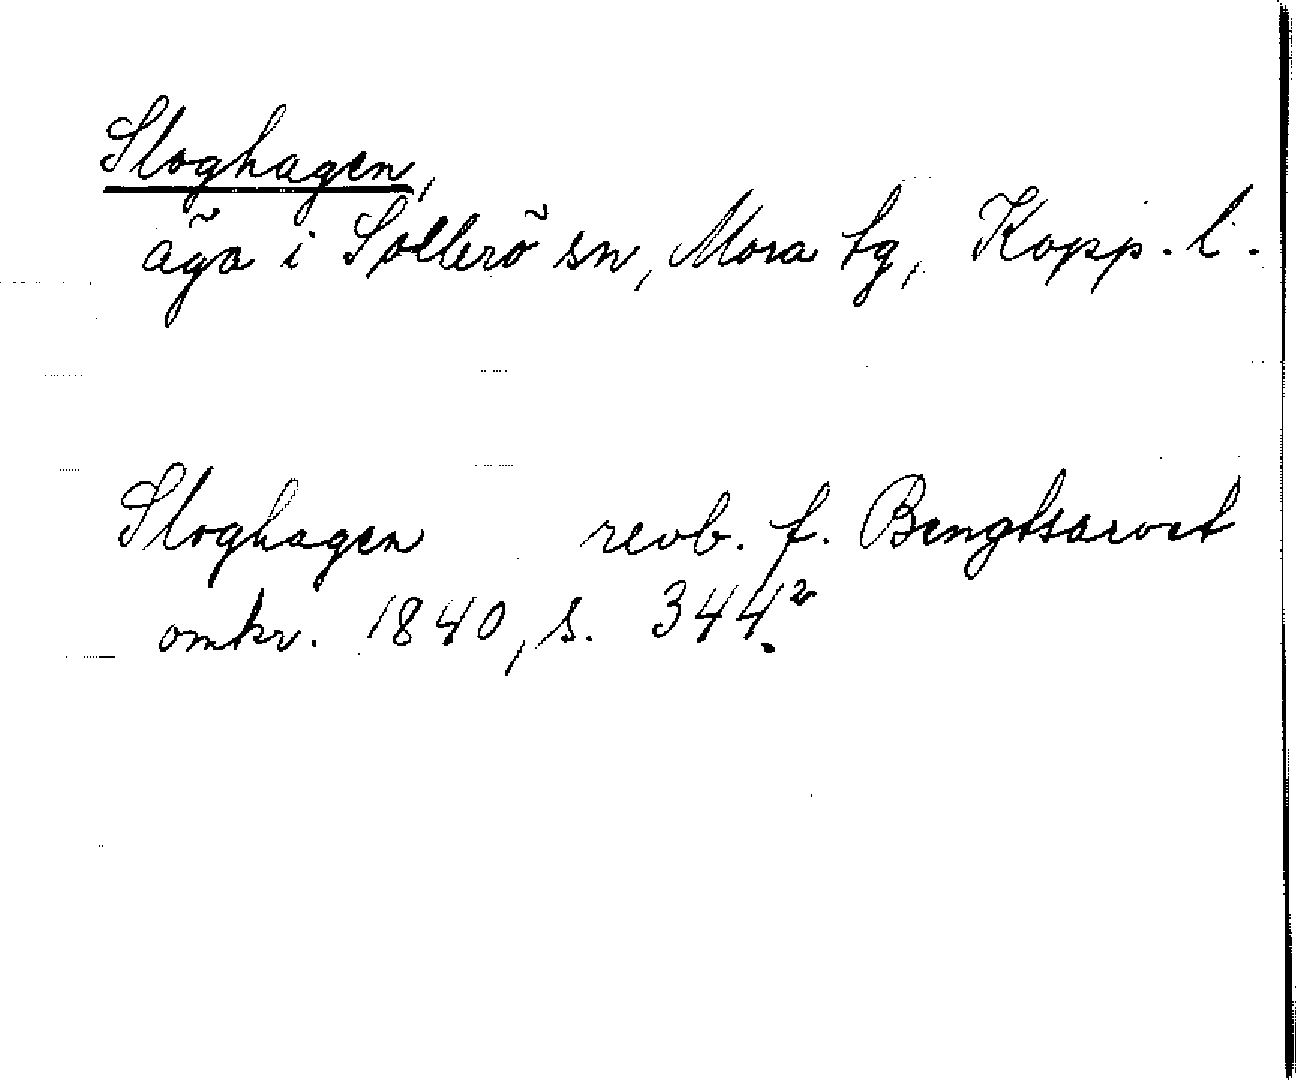 Sloghagen,
äga i Sollerö sn, Mora tg, Kopp. l.
Sloghagen revb. f. Bengtsarvet
omkr. 1840, s. 344².